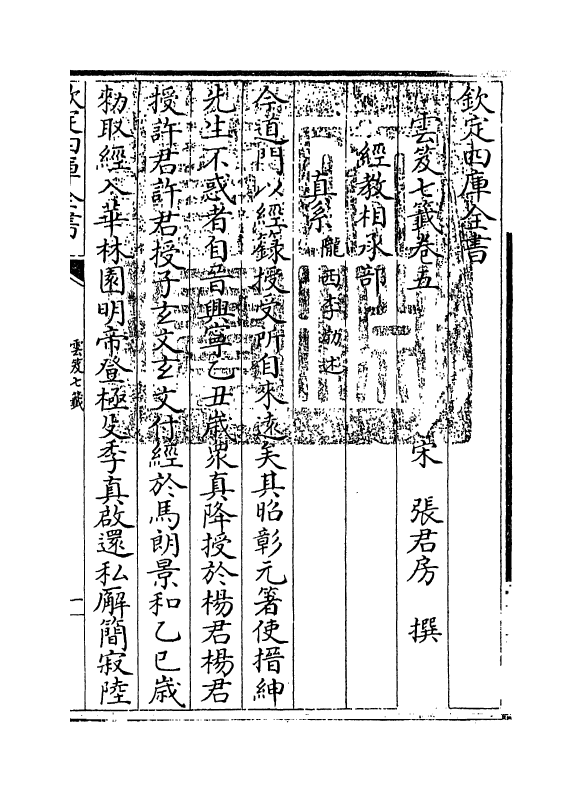 欽定四庫全書
雲笈七籤卷五
宋 張君房 撰
經教相承部
真系 隴西李渤述
今道門以經籙授受所自來遠矣其昭彰元著使搢紳
先生不惑者自晉興寧乙丑歳衆真降授於楊君楊君
授許君許君授子玄文玄文付經於馬朗景和乙巳歳
勑取經入華林園明帝登極殳季真啟還私廨簡寂陸
欽定四庫全書
雲笈七籤
一